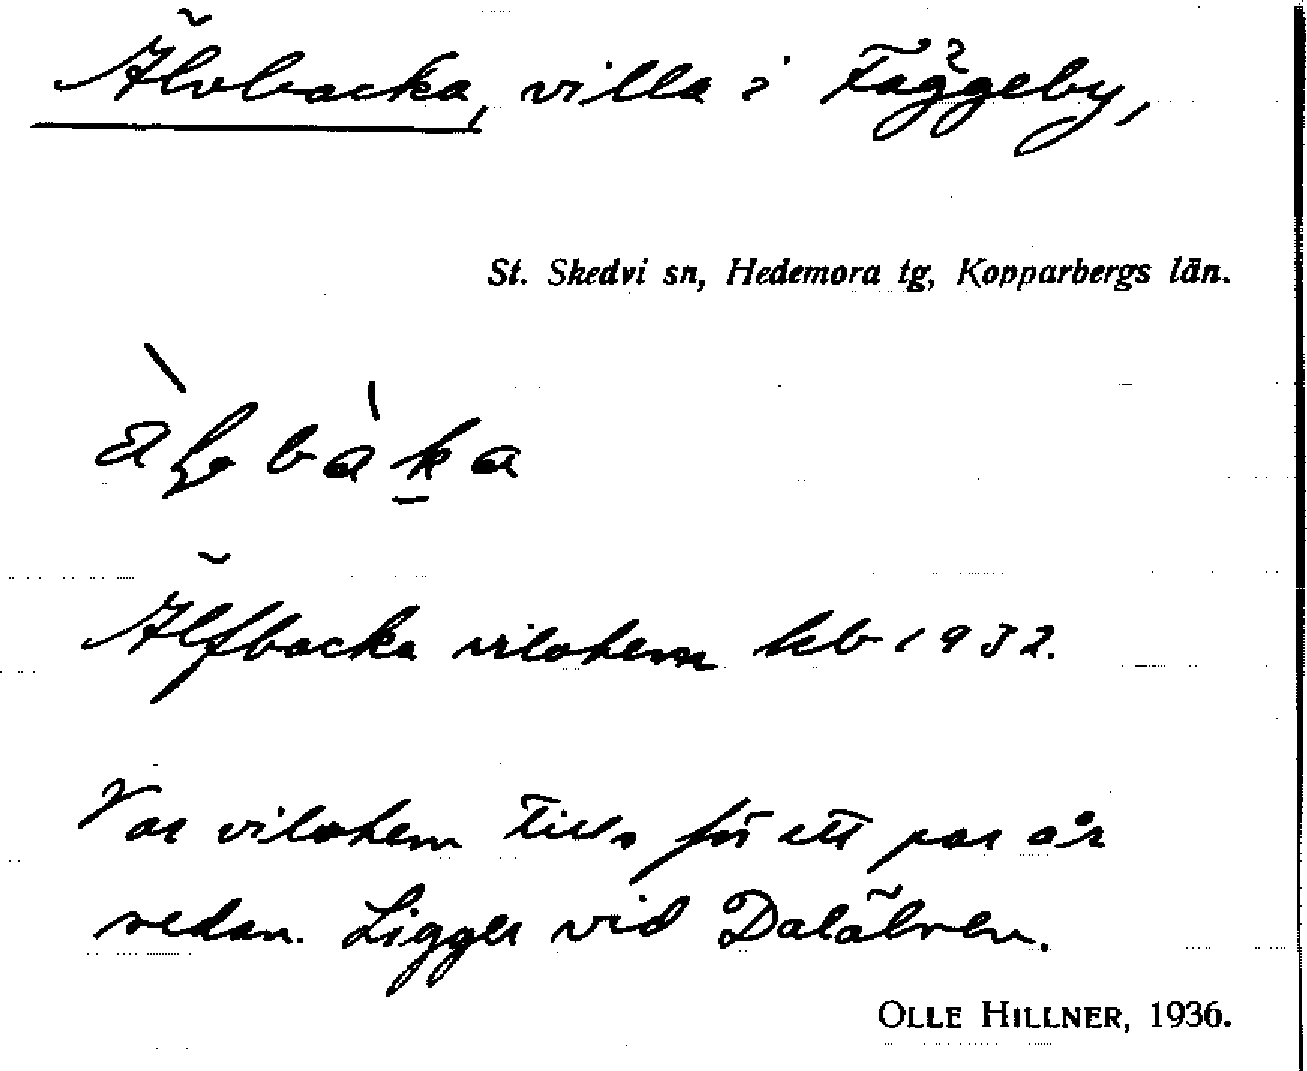 Älvbacka, villa i Fäggeby,
St. Skedvi sn, Hedemora tg, Kopparbergs län.
Älfbacka vilohem kb 1932.
Var vilohem tills för ett par år
sedan. Ligger vid Dalälven.
OLLE HILLNER, 1936.